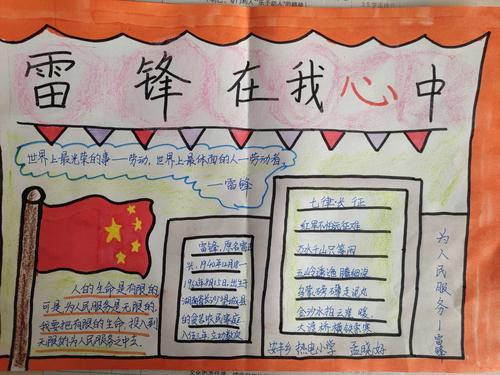 雷锋在我心中
世界上最光荣的事一劳动,世界上最体面的人一劳动者。
一雷锋
人的生命是有限的
可是为人民服务是无限的,
我要把有限的生命,投入到
无限的为人民服务之中去。
雷锋,原名雷正
兴,1940年12月18—
1962年8月15日,出生于
湖南省长沙望城县
的贫农民家庭
七律长征
红军不怕远征难
万水千山只等闲
五岭逶迤腾细浪
乌蒙磅礴走泥丸
金沙水拍云崖暖
大渡桥横铁索寒
为人民服务一雷锋
安丰乡热电小学 孟晓好